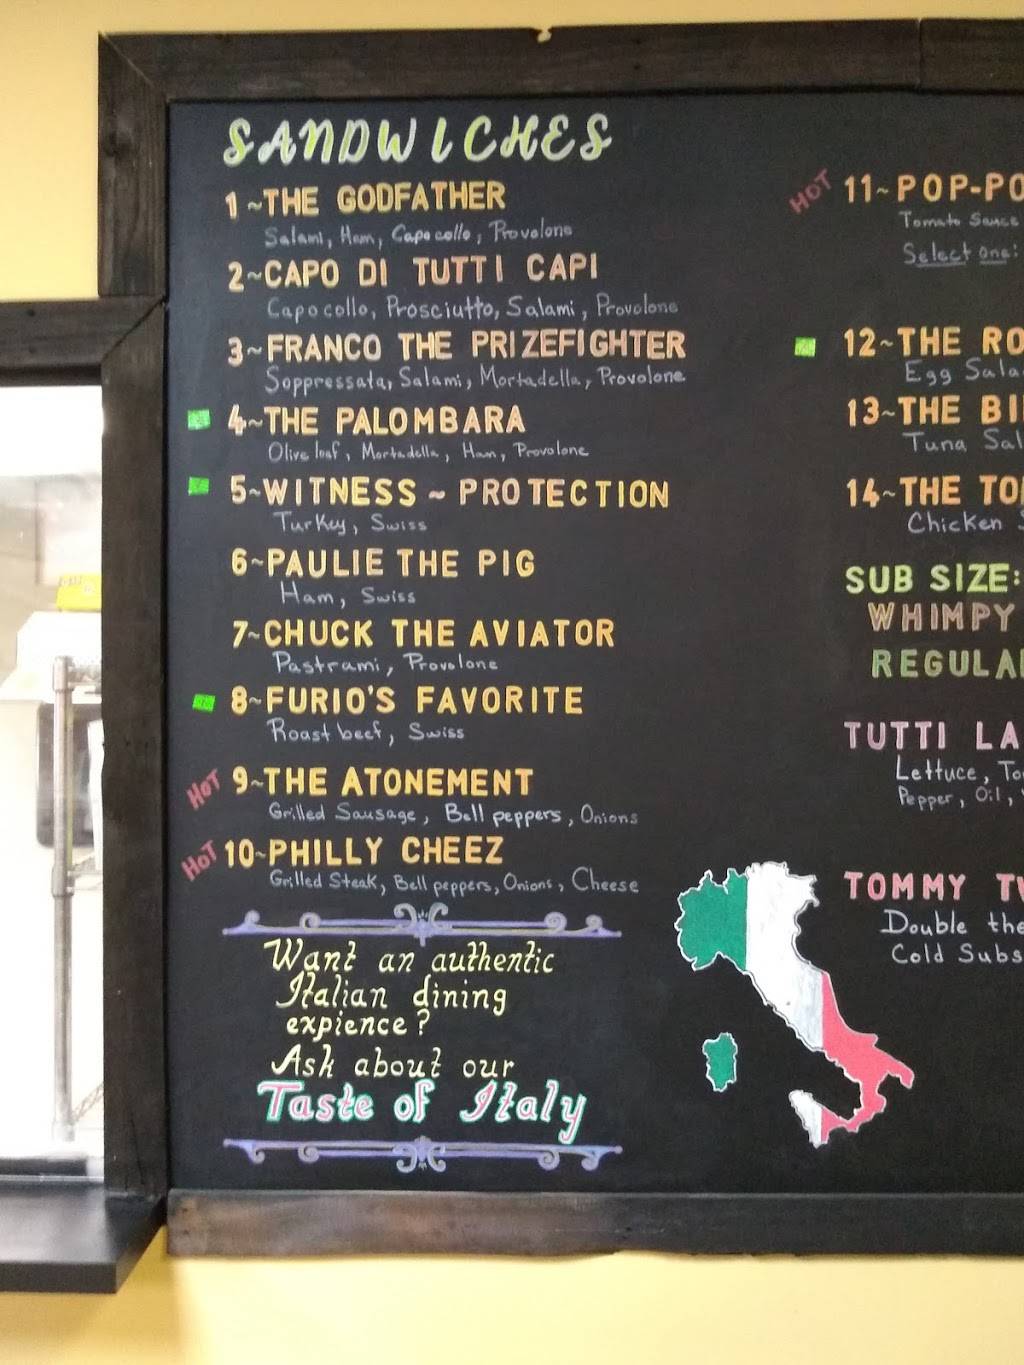 SANDWICHES
1~THE GODFATHER
Salami, Ham, Capocollo, Provolone
2~CAPO DI TUTTI CAPI
Capocollo, Prosciutto, Salami, Provolone
3~FRANCO THE PRIZEFIGHTER
Soppressata, Salami, Mortadella, Provolone
4~THE PALOMBARA
Olive loaf, Mortadella, Ham, Provolone
5~WITNESS~PROTECTION
Turkey, Swiss
6~PAULIE THE PIG
Ham, Swiss
7~CHUCK THE AVIATOR
Pastrami, Provolone
8~FURIO'S FAVORITE
Roast beef, Swiss
HOT 9~THE ATONEMENT
Grilled Sausage, Bell peppers, Onions
HOT 10~PHILLY CHEEZ
Grilled Steak, Bell peppers, Onions, Cheese
Want an authentic
Italian dining
expience?
Ask about our
Taste of Italy
HOT 11~POP-PO
Tomato Sauce
Select one:
12~THE RO
Egg Sala
13~THE BI
Tuna Sal
14~THE TO
Chicken
SUB SIZE:
WHIMPY
REGULA
TUTTI LA
Lettuce, To
Pepper, Oil,
TOMMY TW
Double the
Cold Subs